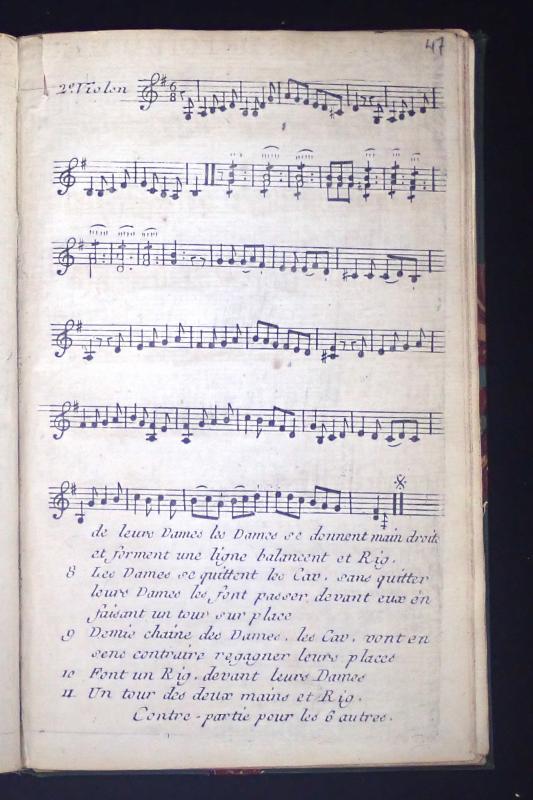 47
2e. Violon
6
8
de leurs Dames les Dames se donnent main droite
et forment une ligne balancent et Rig.
8 Les Dames se quittent les Cav. sans quitter
leurs Dames les font passer devant eux en
faisant un tour sur place
9 Demie chaine des Dames, les Cav. vont en
sens contraire regagner leurs places
10 Font un Rig. devant leurs Dames
11 Un tour des deux mains et Rig.
Contre-partie pour les 6 autres.